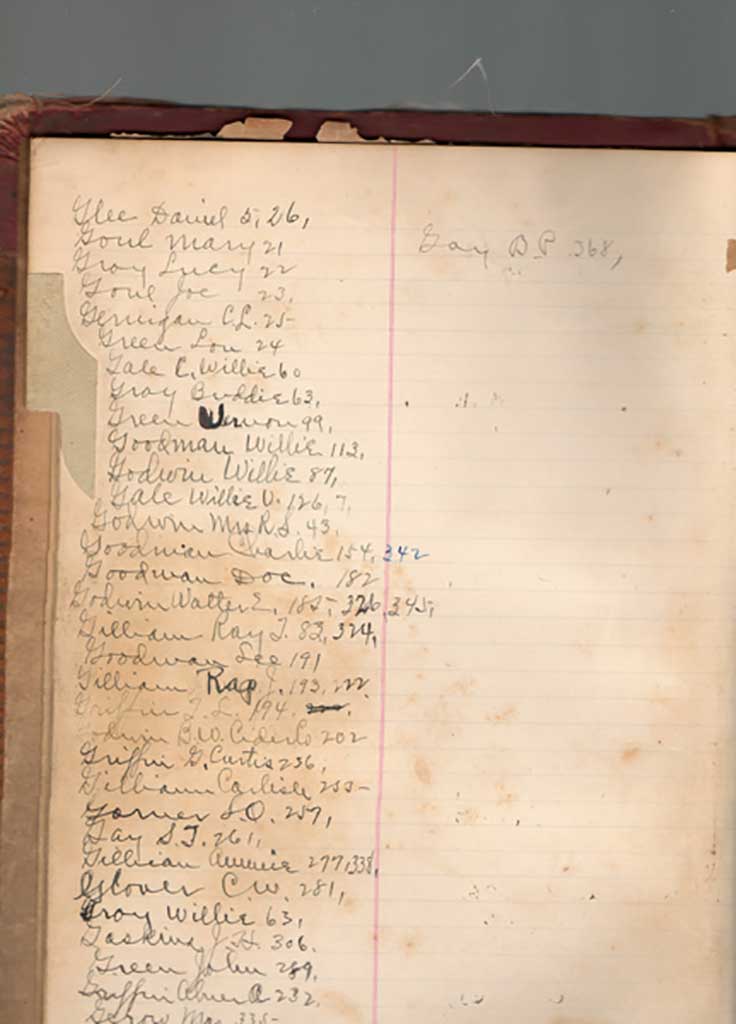 Glee Daniel 5, 26,
Goul Mary 21
Gray Lucy 22
Goul Joe 23,
Gernigan C.L. 25
Green Lou 24
Gale C. Willie 60
Gray Buddie 63,
Green Vernon 99,
Goodman Willie 113,
Godwin Willie 87,
Gale Willie V. 126, 7,
Godwin Mrs R.S. 43,
Goodman Charlie 154, 342
Goodman Doc. 182
Godwin Walter E. 185, 326, 345,
Gilliam Ray J. 83, 324,
Goodman Lee 191
Gilliam Ray J. 193, 222.
Griffin J. L. 194.
Godwin B.W. 202
Griffin G. Curtis 236,
Gilliam Carlisle 255
Garner S.O. 257,
Gay S.J. 261,
Gillian Annie 277, 338,
Glover C.W. 281,
Gray Willie 63,
Gaskins J.H. 306.
Green John 289,
Griffin Abner 232,
335
Gay B.P. 368,